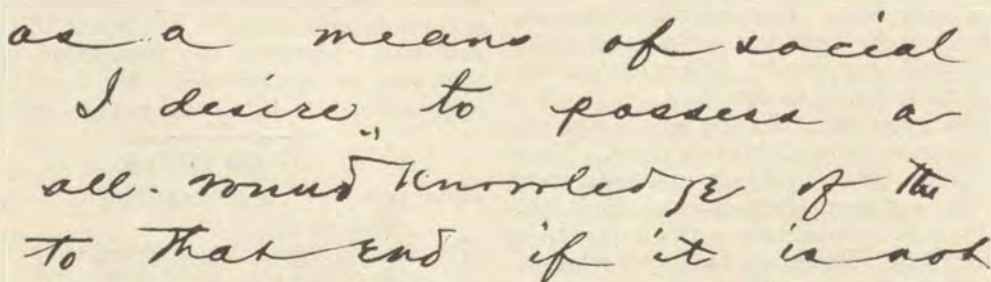 as a means of social
I desire, to possess a
all-round knowledge of the
to that end if it is not